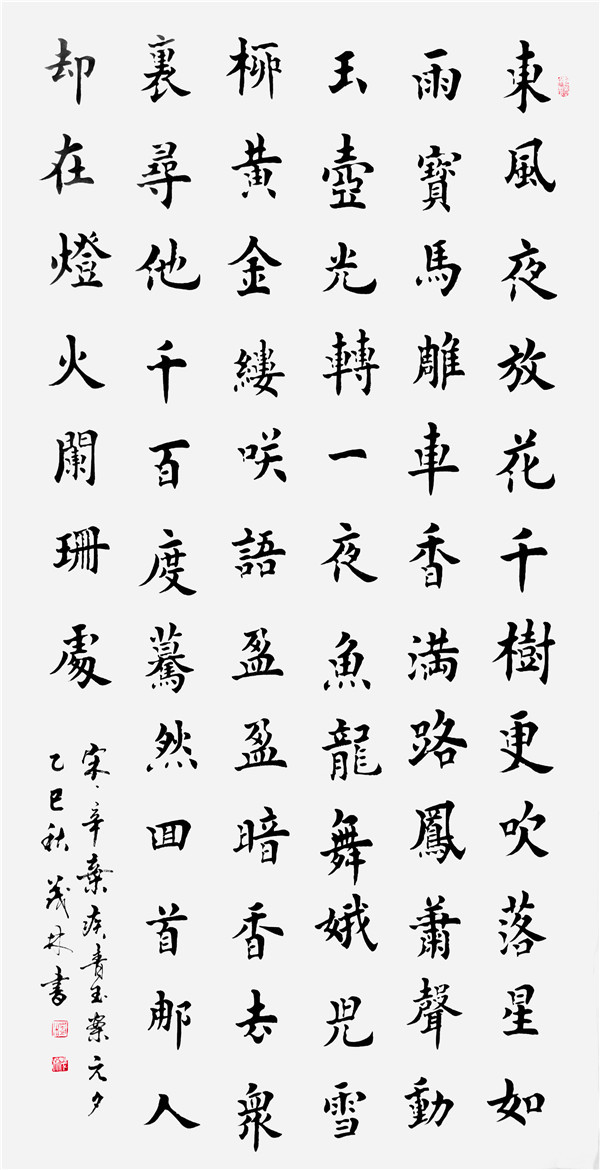 東風夜放花千樹更吹落星如
雨寶馬雕車香満路鳳蕭聲動
玉壺光轉一夜魚龍舞娥兒雪
柳黃金縷咲語盈盈暗香去衆
裏尋他千百度驀然回首那人
却在燈火闌珊處
宋、辛棄疾青玉案元夕
乙巳秋茂林書